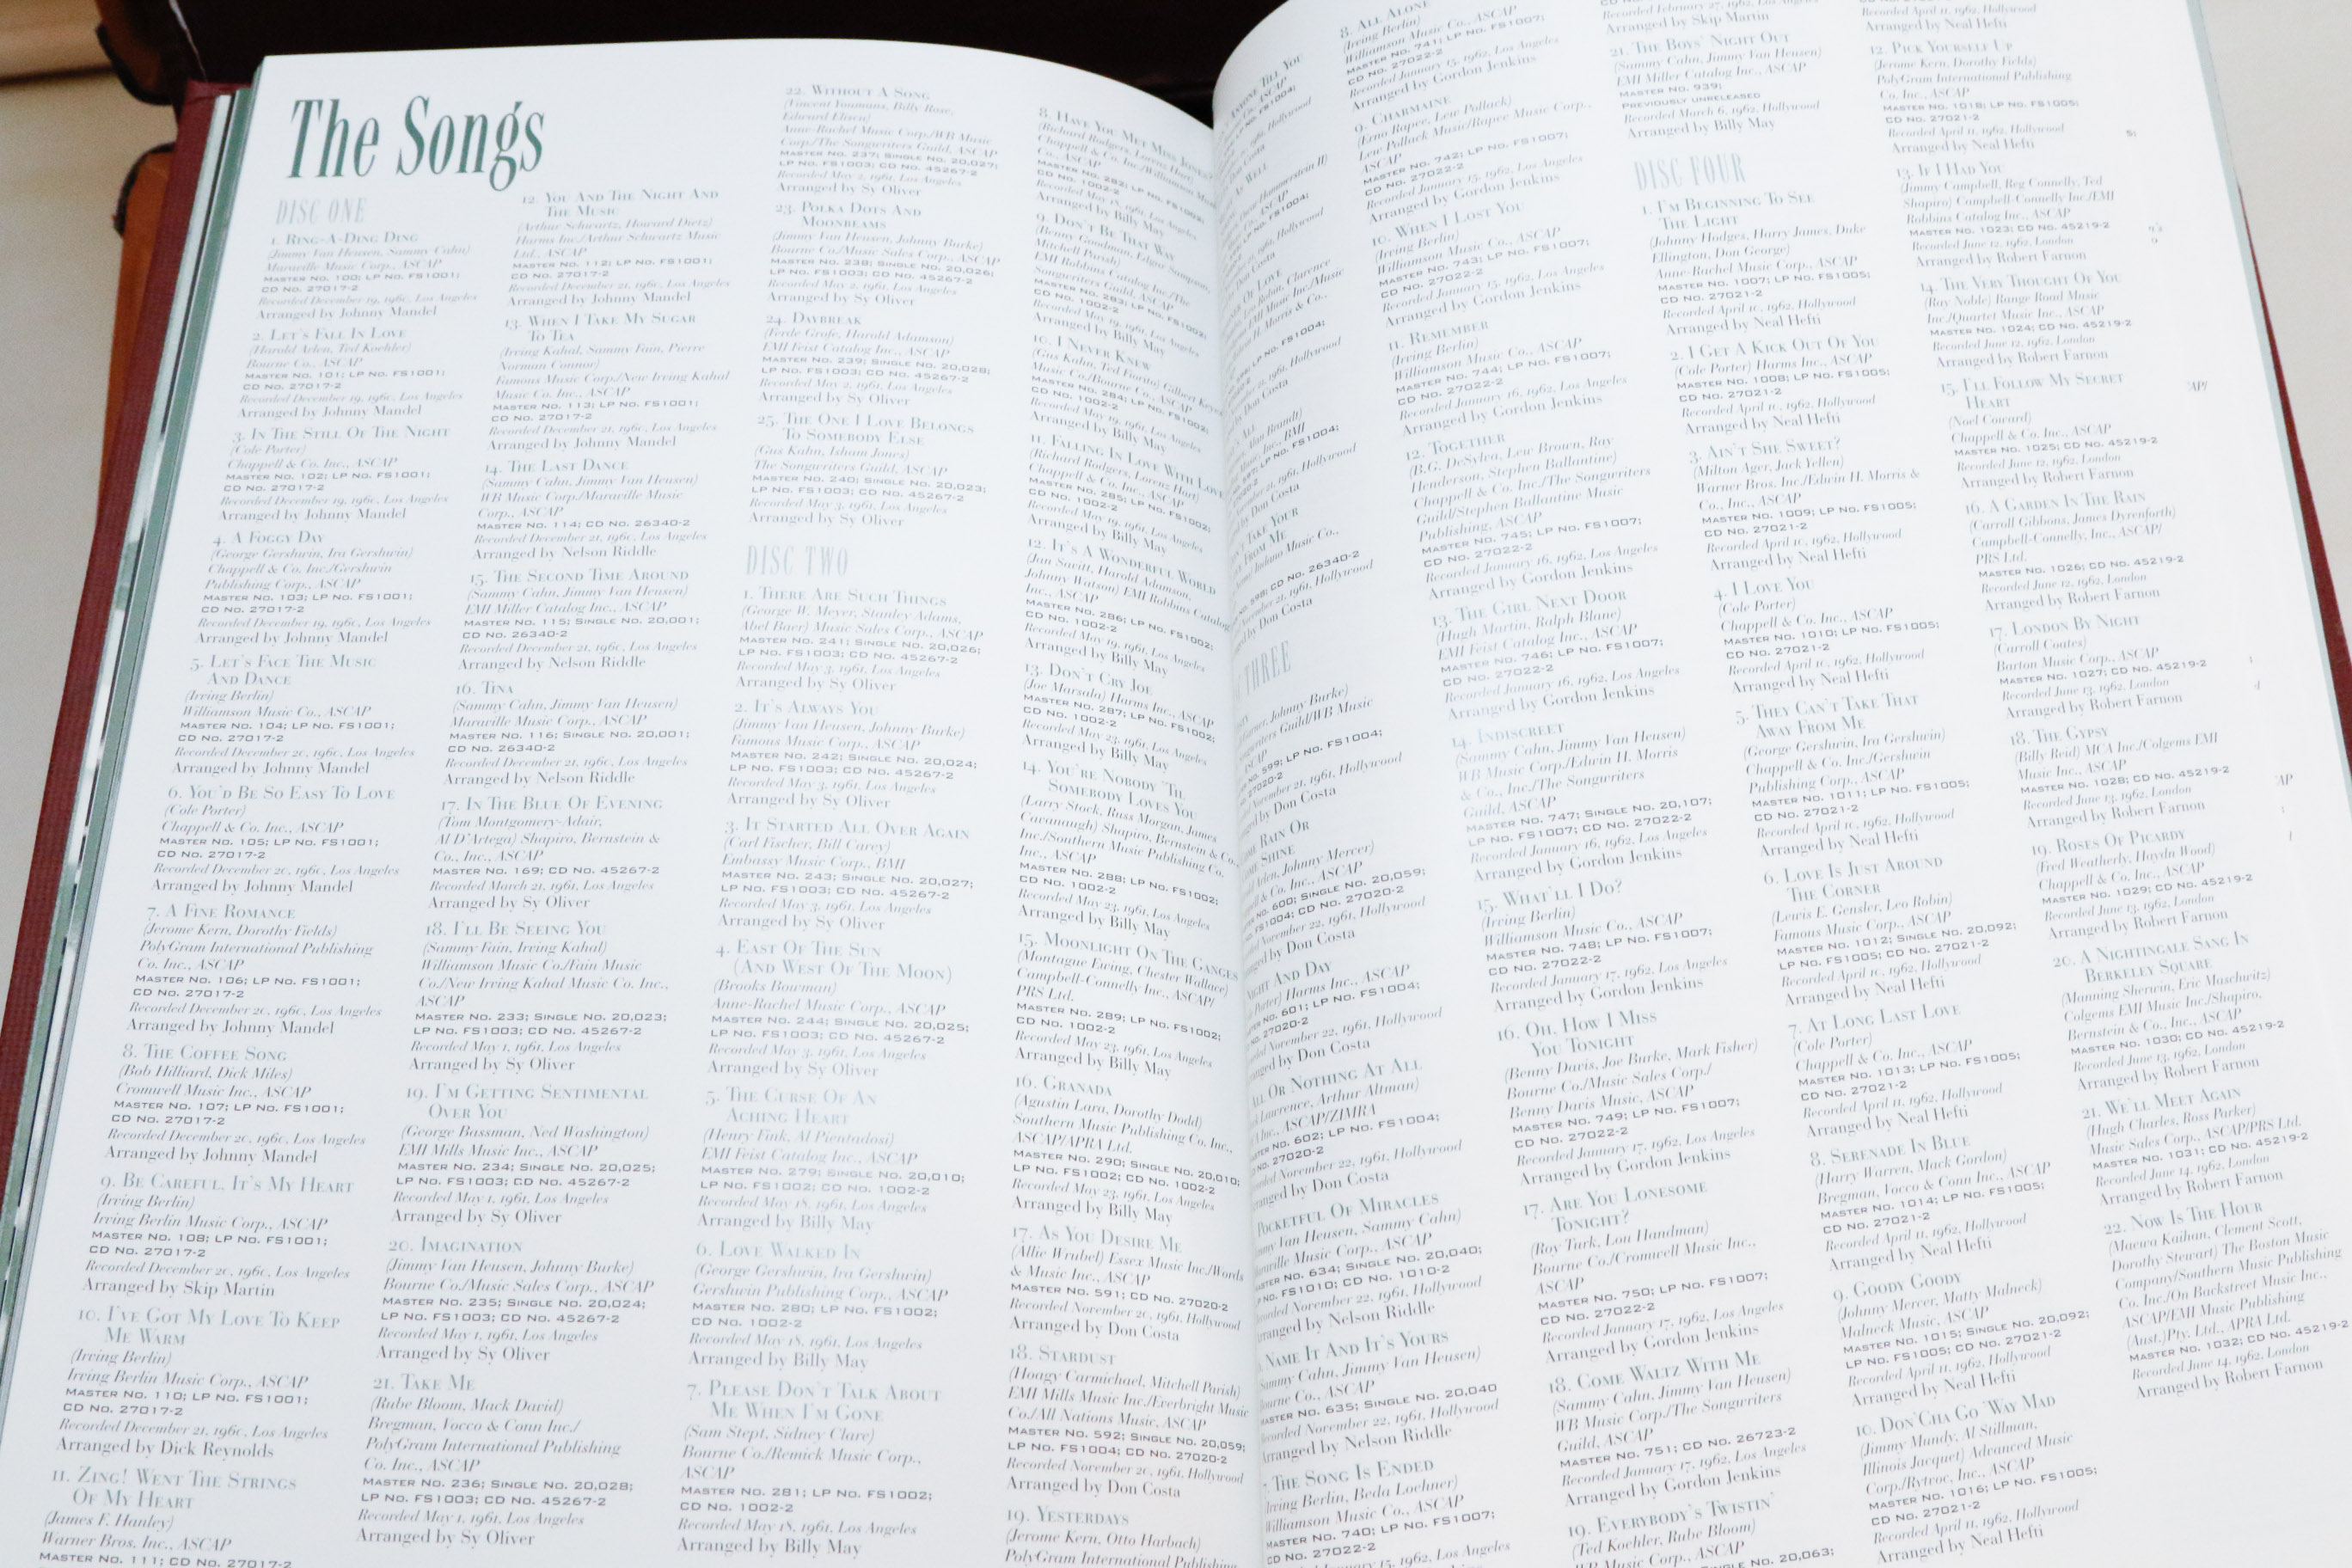 The Songs
DISC ONE
1. Ring-A-Ding Ding
(Jimmy Van Heusen, Sammy Cahn)
Maraville Music Corp., ASCAP
Master No. 100; LP No. FS1001;
CD No. 27017-2
Recorded December 19, 1960, Los Angeles
Arranged by Johnny Mandel
2. Let's Fall In Love
(Harold Arlen, Ted Koehler)
Bourne Co., ASCAP
Master No. 101; LP No. FS1001;
CD No. 27017-2
Recorded December 19, 1960, Los Angeles
Arranged by Johnny Mandel
3. In The Still Of The Night
(Cole Porter)
Chappell & Co. Inc., ASCAP
Master No. 102; LP No. FS1001;
CD No. 27017-2
Recorded December 19, 1960, Los Angeles
Arranged by Johnny Mandel
4. A Foggy Day
(George Gershwin, Ira Gershwin)
Chappell & Co. Inc./Gershwin
Publishing Corp., ASCAP
Master No. 103; LP No. FS1001;
CD No. 27017-2
Recorded December 19, 1960, Los Angeles
Arranged by Johnny Mandel
5. Let's Face The Music
And Dance
(Irving Berlin)
Williamson Music Co., ASCAP
Master No. 104; LP No. FS1001;
CD No. 27017-2
Recorded December 20, 1960, Los Angeles
Arranged by Johnny Mandel
6. You'd Be So Easy To Love
(Cole Porter)
Chappell & Co. Inc., ASCAP
Master No. 105; LP No. FS1001;
CD No. 27017-2
Recorded December 20, 1960, Los Angeles
Arranged by Johnny Mandel
7. A Fine Romance
(Jerome Kern, Dorothy Fields)
PolyGram International Publishing
Co. Inc., ASCAP
Master No. 106; LP No. FS1001;
CD No. 27017-2
Recorded December 20, 1960, Los Angeles
Arranged by Johnny Mandel
8. The Coffee Song
(Bob Hilliard, Dick Miles)
Cromwell Music Inc., ASCAP
Master No. 107; LP No. FS1001;
CD No. 27017-2
Recorded December 20, 1960, Los Angeles
Arranged by Johnny Mandel
9. Be Careful, It's My Heart
(Irving Berlin)
Irving Berlin Music Corp., ASCAP
Master No. 108; LP No. FS1001;
CD No. 27017-2
Recorded December 20, 1960, Los Angeles
Arranged by Skip Martin
10. I've Got My Love To Keep
Me Warm
(Irving Berlin)
Irving Berlin Music Corp., ASCAP
Master No. 110; LP No. FS1001;
CD No. 27017-2
Recorded December 21, 1960, Los Angeles
Arranged by Dick Reynolds
11. Zing! Went The Strings
Of My Heart
(James F. Hanley)
Warner Bros. Inc., ASCAP
Master No. 111; CD No. 27017-2
12. You And The Night And
The Music
(Arthur Schwartz, Howard Dietz)
Harms Inc./Arthur Schwartz Music
Ltd., ASCAP
Master No. 112; LP No. FS1001;
CD No. 27017-2
Recorded December 21, 1960, Los Angeles
Arranged by Johnny Mandel
13. When I Take My Sugar
To Tea
(Irving Kahal, Sammy Fain, Pierre
Norman Connor)
Famous Music Corp./New Irving Kahal
Music Co. Inc., ASCAP
Master No. 113; LP No. FS1001;
CD No. 27017-2
Recorded December 21, 1960, Los Angeles
Arranged by Johnny Mandel
14. The Last Dance
(Sammy Cahn, Jimmy Van Heusen)
WB Music Corp./Maraville Music
Corp., ASCAP
Master No. 114; CD No. 26340-2
Recorded December 21, 1960, Los Angeles
Arranged by Nelson Riddle
15. The Second Time Around
(Sammy Cahn, Jimmy Van Heusen)
EMI Miller Catalog Inc., ASCAP
Master No. 115; Single No. 20,001;
CD No. 26340-2
Recorded December 21, 1960, Los Angeles
Arranged by Nelson Riddle
16. Tina
(Sammy Cahn, Jimmy Van Heusen)
Maraville Music Corp., ASCAP
Master No. 116; Single No. 20,001;
CD No. 26340-2
Recorded December 21, 1960, Los Angeles
Arranged by Nelson Riddle
17. In The Blue Of Evening
(Tom Montgomery-Adair,
Al D'Artega) Shapiro, Bernstein &
Co., Inc., ASCAP
Master No. 169; CD No. 45267-2
Recorded March 21, 1961, Los Angeles
Arranged by Sy Oliver
18. I'll Be Seeing You
(Sammy Fain, Irving Kahal)
Williamson Music Co./Fain Music
Co./New Irving Kahal Music Co. Inc.,
ASCAP
Master No. 233; Single No. 20,023;
LP No. FS1003; CD No. 45267-2
Recorded May 1, 1961, Los Angeles
Arranged by Sy Oliver
19. I'm Getting Sentimental
Over You
(George Bassman, Ned Washington)
EMI Mills Music Inc., ASCAP
Master No. 234; Single No. 20,025;
LP No. FS1003; CD No. 45267-2
Recorded May 1, 1961, Los Angeles
Arranged by Sy Oliver
20. Imagination
(Jimmy Van Heusen, Johnny Burke)
Bourne Co./Music Sales Corp., ASCAP
Master No. 235; Single No. 20,024;
LP No. FS1003; CD No. 45267-2
Recorded May 1, 1961, Los Angeles
Arranged by Sy Oliver
21. Take Me
(Rube Bloom, Mack David)
Bregman, Vocco & Conn Inc./
PolyGram International Publishing
Co. Inc., ASCAP
Master No. 236; Single No. 20,028;
LP No. FS1003; CD No. 45267-2
Recorded May 1, 1961, Los Angeles
Arranged by Sy Oliver
22. Without A Song
(Vincent Youmans, Billy Rose,
Edward Eliscu)
Anne-Rachel Music Corp./WB Music
Corp./The Songwriters Guild, ASCAP
Master No. 237; Single No. 20,027;
LP No. FS1003; CD No. 45267-2
Recorded May 2, 1961, Los Angeles
Arranged by Sy Oliver
23. Polka Dots And
Moonbeams
(Jimmy Van Heusen, Johnny Burke)
Bourne Co./Music Sales Corp., ASCAP
Master No. 238; Single No. 20,026;
LP No. FS1003; CD No. 45267-2
Recorded May 2, 1961, Los Angeles
Arranged by Sy Oliver
24. Daybreak
(Ferde Grofe, Harold Adamson)
EMI Feist Catalog Inc., ASCAP
Master No. 239; Single No. 20,028;
LP No. FS1003; CD No. 45267-2
Recorded May 2, 1961, Los Angeles
Arranged by Sy Oliver
25. The One I Love Belongs
To Somebody Else
(Gus Kahn, Isham Jones)
The Songwriters Guild, ASCAP
Master No. 240; Single No. 20,023;
LP No. FS1003; CD No. 45267-2
Recorded May 3, 1961, Los Angeles
Arranged by Sy Oliver
DISC TWO
1. There Are Such Things
(George W. Meyer, Stanley Adams,
Abel Baer) Music Sales Corp., ASCAP
Master No. 241; Single No. 20,026;
LP No. FS1003; CD No. 45267-2
Recorded May 3, 1961, Los Angeles
Arranged by Sy Oliver
2. It's Always You
(Jimmy Van Heusen, Johnny Burke)
Famous Music Corp., ASCAP
Master No. 242; Single No. 20,024;
LP No. FS1003; CD No. 45267-2
Recorded May 3, 1961, Los Angeles
Arranged by Sy Oliver
3. It Started All Over Again
(Carl Fischer, Bill Carey)
Embassy Music Corp., BMI
Master No. 243; Single No. 20,027;
LP No. FS1003; CD No. 45267-2
Recorded May 3, 1961, Los Angeles
Arranged by Sy Oliver
4. East Of The Sun
(And West Of The Moon)
(Brooks Bowman)
Anne-Rachel Music Corp., ASCAP
Master No. 244; Single No. 20,025;
LP No. FS1003; CD No. 45267-2
Recorded May 3, 1961, Los Angeles
Arranged by Sy Oliver
5. The Curse Of An
Aching Heart
(Henry Fink, Al Piantadosi)
EMI Feist Catalog Inc., ASCAP
Master No. 279; Single No. 20,010;
LP No. FS1002; CD No. 1002-2
Recorded May 18, 1961, Los Angeles
Arranged by Billy May
6. Love Walked In
(George Gershwin, Ira Gershwin)
Gershwin Publishing Corp., ASCAP
Master No. 280; LP No. FS1002;
CD No. 1002-2
Recorded May 18, 1961, Los Angeles
Arranged by Billy May
7. Please Don't Talk About
Me When I'm Gone
(Sam Stept, Sidney Clare)
Bourne Co./Remick Music Corp.,
ASCAP
Master No. 281; LP No. FS1002;
CD No. 1002-2
Recorded May 18, 1961, Los Angeles
Arranged by Billy May
8. Have You Met Miss Jones?
(Richard Rodgers, Lorenz Hart)
Chappell & Co. Inc./Williamson Music
Co., ASCAP
Master No. 282; LP No. FS1002;
CD No. 1002-2
Recorded May 18, 1961, Los Angeles
Arranged by Billy May
9. Don't Be That Way
(Benny Goodman, Edgar Sampson,
Mitchell Parish)
EMI Robbins Catalog Inc./The
Songwriters Guild, ASCAP
Master No. 283; LP No. FS1002;
CD No. 1002-2
Recorded May 19, 1961, Los Angeles
Arranged by Billy May
10. I Never Knew
(Gus Kahn, Ted Fiorito) Gilbert Keyes
Music Co./Bourne Co., ASCAP
Master No. 284; LP No. FS1002;
CD No. 1002-2
Recorded May 19, 1961, Los Angeles
Arranged by Billy May
11. Falling In Love With Love
(Richard Rodgers, Lorenz Hart)
Chappell & Co. Inc., ASCAP
Master No. 285; LP No. FS1002;
CD No. 1002-2
Recorded May 19, 1961, Los Angeles
Arranged by Billy May
12. It's A Wonderful World
(Jan Savitt, Harold Adamson,
Johnny Watson) EMI Robbins Catalog
Inc., ASCAP
Master No. 286; LP No. FS1002;
CD No. 1002-2
Recorded May 19, 1961, Los Angeles
Arranged by Billy May
13. Don't Cry Joe
(Joe Marsala) Harms Inc., ASCAP
Master No. 287; LP No. FS1002;
CD No. 1002-2
Recorded May 23, 1961, Los Angeles
Arranged by Billy May
14. You're Nobody 'Til
Somebody Loves You
(Larry Stock, Russ Morgan, James
Cavanaugh) Shapiro, Bernstein & Co.,
Inc./Southern Music Publishing Co.
Inc., ASCAP
Master No. 288; LP No. FS1002;
CD No. 1002-2
Recorded May 23, 1961, Los Angeles
Arranged by Billy May
15. Moonlight On The Ganges
(Montague Ewing, Chester Wallace)
Campbell-Connelly Inc., ASCAP/
PRS Ltd.
Master No. 289; LP No. FS1002;
CD No. 1002-2
Recorded May 23, 1961, Los Angeles
Arranged by Billy May
16. Granada
(Agustin Lara, Dorothy Dodd)
Southern Music Publishing Co. Inc.,
ASCAP/APRA Ltd.
Master No. 290; Single No. 20,010;
LP No. FS1002; CD No. 1002-2
Recorded May 23, 1961, Los Angeles
Arranged by Billy May
17. As You Desire Me
(Allie Wrubel) Essex Music Inc./Words
& Music Inc., ASCAP
Master No. 591; CD No. 27020-2
Recorded November 20, 1961, Hollywood
Arranged by Don Costa
18. Stardust
(Hoagy Carmichael, Mitchell Parish)
EMI Mills Music Inc./Everbright Music
Co./All Nations Music, ASCAP
Master No. 592; Single No. 20,059;
LP No. FS1004; CD No. 27020-2
Recorded November 20, 1961, Hollywood
Arranged by Don Costa
19. Yesterdays
(Jerome Kern, Otto Harbach)
PolyGram International Publishing
Till You
ASCAP
FS1004;
1961, Hollywood
Costa
As Well
Hammerstein II)
FS1004;
Hollywood
Costa
Of Love
Robin, Clarence
Music Inc./Music
Morris & Co.,
FS1004;
1961, Hollywood
Don Costa
All
Alan Brandt)
Music, Inc., BMI
597; LP No. FS1004;
November 21, 1961, Hollywood
by Don Costa
Take Your
From Me
Indiano Music Co.,
598; CD No. 26340-2
November 21, 1961, Hollywood
by Don Costa
THREE
Johnny Burke)
Guild/WB Music
ASCAP
599; LP No. FS1004;
27020-2
November 21, 1961, Hollywood
by Don Costa
Rain Or
Shine
Arlen, Johnny Mercer)
& Co. Inc., ASCAP
600; Single No. 20,059;
FS1004; CD No. 27020-2
November 22, 1961, Hollywood
by Don Costa
Night And Day
Porter) Harms Inc., ASCAP
No. 601; LP No. FS1004;
27020-2
November 22, 1961, Hollywood
by Don Costa
All Or Nothing At All
Lawrence, Arthur Altman)
Inc., ASCAP/ZIMRA
No. 602; LP No. FS1004;
No. 27020-2
November 22, 1961, Hollywood
by Don Costa
Pocketful Of Miracles
Van Heusen, Sammy Cahn)
Maraville Music Corp., ASCAP
Master No. 634; Single No. 20,040;
LP No. FS1010; CD No. 1010-2
Recorded November 22, 1961, Hollywood
Arranged by Nelson Riddle
Name It And It's Yours
(Sammy Cahn, Jimmy Van Heusen)
Bourne Co., ASCAP
Master No. 635; Single No. 20,040
Recorded November 22, 1961, Hollywood
Arranged by Nelson Riddle
7. The Song Is Ended
(Irving Berlin, Beda Loehner)
Williamson Music Co., ASCAP
Master No. 740; LP No. FS1007;
CD No. 27022-2
January 15, 1962, Los Angeles
8. All Alone
(Irving Berlin)
Williamson Music Co., ASCAP
Master No. 741; LP No. FS1007;
CD No. 27022-2
Recorded January 15, 1962, Los Angeles
Arranged by Gordon Jenkins
9. Charmaine
(Erno Rapee, Lew Pollack)
Lew Pollack Music/Rapee Music Corp.,
ASCAP
Master No. 742; LP No. FS1007;
CD No. 27022-2
Recorded January 15, 1962, Los Angeles
Arranged by Gordon Jenkins
10. When I Lost You
(Irving Berlin)
Williamson Music Co., ASCAP
Master No. 743; LP No. FS1007;
CD No. 27022-2
Recorded January 15, 1962, Los Angeles
Arranged by Gordon Jenkins
11. Remember
(Irving Berlin)
Williamson Music Co., ASCAP
Master No. 744; LP No. FS1007;
CD No. 27022-2
Recorded January 16, 1962, Los Angeles
Arranged by Gordon Jenkins
12. Together
(B.G. DeSylva, Lew Brown, Ray
Henderson, Stephen Ballantine)
Chappell & Co. Inc./The Songwriters
Guild/Stephen Ballantine Music
Publishing, ASCAP
Master No. 745; LP No. FS1007;
CD No. 27022-2
Recorded January 16, 1962, Los Angeles
Arranged by Gordon Jenkins
13. The Girl Next Door
(Hugh Martin, Ralph Blane)
EMI Feist Catalog Inc., ASCAP
Master No. 746; LP No. FS1007;
CD No. 27022-2
Recorded January 16, 1962, Los Angeles
Arranged by Gordon Jenkins
14. Indiscreet
(Sammy Cahn, Jimmy Van Heusen)
WB Music Corp./Edwin H. Morris
& Co., Inc./The Songwriters
Guild, ASCAP
Master No. 747; Single No. 20,107;
LP No. FS1007; CD No. 27022-2
Recorded January 16, 1962, Los Angeles
Arranged by Gordon Jenkins
15. What'll I Do?
(Irving Berlin)
Williamson Music Co., ASCAP
Master No. 748; LP No. FS1007;
CD No. 27022-2
Recorded January 17, 1962, Los Angeles
Arranged by Gordon Jenkins
16. Oh, How I Miss
You Tonight
(Benny Davis, Joe Burke, Mark Fisher)
Bourne Co./Music Sales Corp./
Benny Davis Music, ASCAP
Master No. 749; LP No. FS1007;
CD No. 27022-2
Recorded January 17, 1962, Los Angeles
Arranged by Gordon Jenkins
17. Are You Lonesome
Tonight?
(Roy Turk, Lou Handman)
Bourne Co./Cromwell Music Inc.,
ASCAP
Master No. 750; LP No. FS1007;
CD No. 27022-2
Recorded January 17, 1962, Los Angeles
Arranged by Gordon Jenkins
18. Come Waltz With Me
(Sammy Cahn, Jimmy Van Heusen)
WB Music Corp./The Songwriters
Guild, ASCAP
Master No. 751; CD No. 26723-2
Recorded January 17, 1962, Los Angeles
Arranged by Gordon Jenkins
19. Everybody's Twistin'
(Ted Koehler, Rube Bloom)
Music Corp., ASCAP
Single No. 20,063;
Recorded February 27, 1962, Los Angeles
Arranged by Skip Martin
21. The Boys' Night Out
(Sammy Cahn, Jimmy Van Heusen)
EMI Miller Catalog Inc., ASCAP
Master No. 939;
Previously unreleased
Recorded March 6, 1962, Hollywood
Arranged by Billy May
DISC FOUR
1. I'm Beginning To See
The Light
(Johnny Hodges, Harry James, Duke
Ellington, Don George)
Anne-Rachel Music Corp., ASCAP
Master No. 1007; LP No. FS1005;
CD No. 27021-2
Recorded April 10, 1962, Hollywood
Arranged by Neal Hefti
2. I Get A Kick Out Of You
(Cole Porter) Harms Inc., ASCAP
Master No. 1008; LP No. FS1005;
CD No. 27021-2
Recorded April 11, 1962, Hollywood
Arranged by Neal Hefti
3. Ain't She Sweet?
(Milton Ager, Jack Yellen)
Warner Bros. Inc./Edwin H. Morris &
Co., Inc., ASCAP
Master No. 1009; LP No. FS1005;
CD No. 27021-2
Recorded April 10, 1962, Hollywood
Arranged by Neal Hefti
4. I Love You
(Cole Porter)
Chappell & Co. Inc., ASCAP
Master No. 1010; LP No. FS1005;
CD No. 27021-2
Recorded April 10, 1962, Hollywood
Arranged by Neal Hefti
5. They Can't Take That
Away From Me
(George Gershwin, Ira Gershwin)
Chappell & Co. Inc./Gershwin
Publishing Corp., ASCAP
Master No. 1011; LP No. FS1005;
CD No. 27021-2
Recorded April 10, 1962, Hollywood
Arranged by Neal Hefti
6. Love Is Just Around
The Corner
(Lewis E. Gensler, Leo Robin)
Famous Music Corp., ASCAP
Master No. 1012; Single No. 20,092;
LP No. FS1005; CD No. 27021-2
Recorded April 10, 1962, Hollywood
Arranged by Neal Hefti
7. At Long Last Love
(Cole Porter)
Chappell & Co. Inc., ASCAP
Master No. 1013; LP No. FS1005;
CD No. 27021-2
Recorded April 11, 1962, Hollywood
Arranged by Neal Hefti
8. Serenade In Blue
(Harry Warren, Mack Gordon)
Bregman, Vocco & Conn Inc., ASCAP
Master No. 1014; LP No. FS1005;
CD No. 27021-2
Recorded April 11, 1962, Hollywood
Arranged by Neal Hefti
9. Goody Goody
(Johnny Mercer, Matty Malneck)
Malneck Music, ASCAP
Master No. 1015; Single No. 20,092;
LP No. FS1005; CD No. 27021-2
Recorded April 11, 1962, Hollywood
Arranged by Neal Hefti
10. Don'cha Go 'Way Mad
(Jimmy Mundy, Al Stillman,
Illinois Jacquet) Advanced Music
Corp./Rytvoc, Inc., ASCAP
Master No. 1016; LP No. FS1005;
CD No. 27021-2
Recorded April 11, 1962, Hollywood
Arranged by Neal Hefti
Recorded April 11, 1962, Hollywood
Arranged by Neal Hefti
12. Pick Yourself Up
(Jerome Kern, Dorothy Fields)
PolyGram International Publishing
Co. Inc., ASCAP
Master No. 1018; LP No. FS1005;
CD No. 27021-2
Recorded April 11, 1962, Hollywood
Arranged by Neal Hefti
13. If I Had You
(Jimmy Campbell, Reg Connelly, Ted
Shapiro) Campbell-Connelly Inc./EMI
Robbins Catalog Inc., ASCAP
Master No. 1023; CD No. 45219-2
Recorded June 12, 1962, London
Arranged by Robert Farnon
14. The Very Thought Of You
(Ray Noble) Range Road Music
Inc./Quartet Music Inc., ASCAP
Master No. 1024; CD No. 45219-2
Recorded June 12, 1962, London
Arranged by Robert Farnon
15. I'll Follow My Secret
Heart
(Noel Coward)
Chappell & Co. Inc., ASCAP
Master No. 1025; CD No. 45219-2
Recorded June 12, 1962, London
Arranged by Robert Farnon
16. A Garden In The Rain
(Carroll Gibbons, James Dyrenforth)
Campbell-Connelly, Inc., ASCAP/
PRS Ltd.
Master No. 1026; CD No. 45219-2
Recorded June 12, 1962, London
Arranged by Robert Farnon
17. London By Night
(Carroll Coates)
Barton Music Corp., ASCAP
Master No. 1027; CD No. 45219-2
Recorded June 13, 1962, London
Arranged by Robert Farnon
18. The Gypsy
(Billy Reid) MCA Inc./Colgems EMI
Music Inc., ASCAP
Master No. 1028; CD No. 45219-2
Recorded June 13, 1962, London
Arranged by Robert Farnon
19. Roses Of Picardy
(Fred Weatherly, Haydn Wood)
Chappell & Co. Inc., ASCAP
Master No. 1029; CD No. 45219-2
Recorded June 13, 1962, London
Arranged by Robert Farnon
20. A Nightingale Sang In
Berkeley Square
(Manning Sherwin, Eric Maschwitz)
Colgems EMI Music Inc./Shapiro,
Bernstein & Co., Inc., ASCAP
Master No. 1030; CD No. 45219-2
Recorded June 13, 1962, London
Arranged by Robert Farnon
21. We'll Meet Again
(Hugh Charles, Ross Parker)
Music Sales Corp., ASCAP/PRS Ltd.
Master No. 1031; CD No. 45219-2
Recorded June 14, 1962, London
Arranged by Robert Farnon
22. Now Is The Hour
(Maewa Kaihan, Clement Scott,
Dorothy Stewart) The Boston Music
Company/Southern Music Publishing
Co. Inc./On Backstreet Music Inc.,
ASCAP/EMI Music Publishing
(Aust.)Pty. Ltd., APRA Ltd.
Master No. 1032; CD No. 45219-2
Recorded June 14, 1962, London
Arranged by Robert Farnon